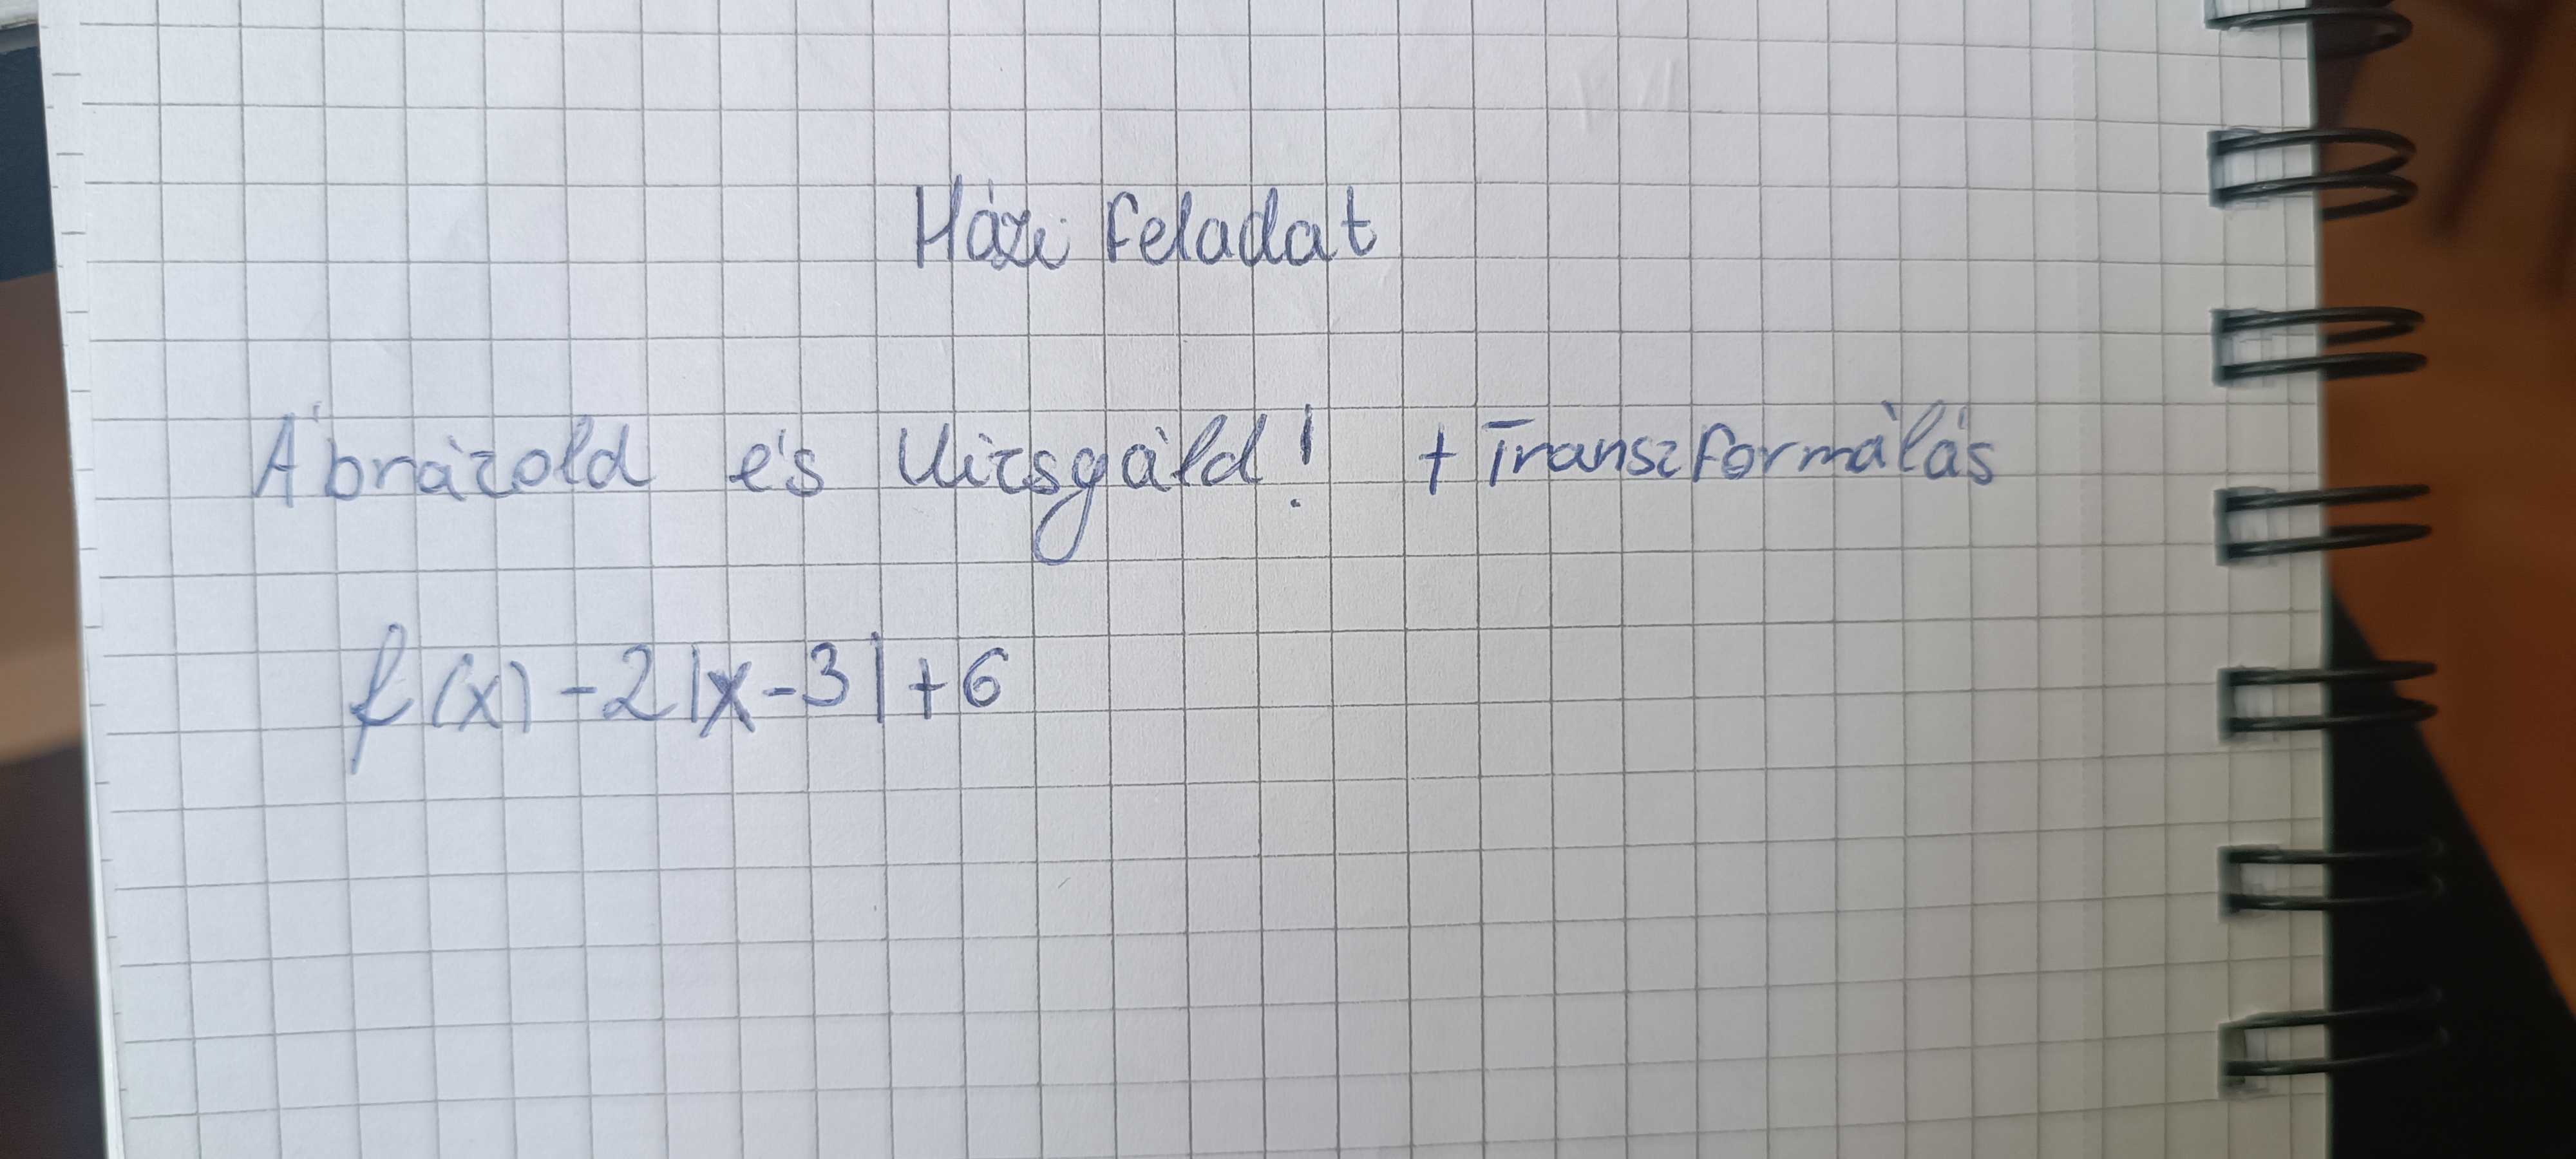 Házi feladat
Ábrázold és Vizsgáld! + Transzformálás
f(x) -2|x-3|+6